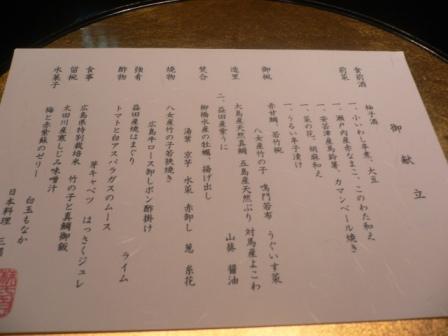 御献立
食前酒 柚子酒
前菜 一、小いわし辛煮、大豆
一、瀬戸内産赤なまこ、このわた和え
一、安芸津産馬鈴薯、カマンベール焼き
一、菜の花、胡麻和え
一、うるい辛子漬け
御椀 赤甘鯛、若竹椀
八女産竹の子 鳴門若布 うぐいす菜
造里 大島産天然真鯛 五島産天然ぶり 対馬産よこわ
二、益田産雲丹 山葵 醤油
焚合 柳橋水産の牡蠣、揚げ出し
湯葉 京芋 水菜 赤卸し 葱 糸花
焼物 八女産竹の子若狭焼き
強肴 広島牛ロース卸しポン酢掛け
益田産焼はまぐり ライム
酢物 トマトと白アスパラガスのムース
芽キャベツ はっさくジュレ
食事 広島県特別栽培米 竹の子と真鯛御飯
留椀 太田川産寒しじみ味噌汁
水菓子 梅と赤紫蘇のゼリー
白玉もなか
日本料理